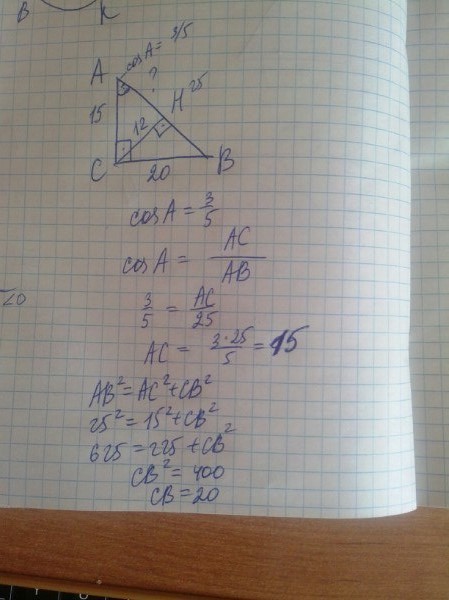 B K
cos A = 3/5
A
?
H 25
15
12
C
B
20
cos A = 3/5
cos A = AC/AB
<0
3/5 = AC/25
AC = 3·25/5 = 15
AB² = AC² + CB²
25² = 15² + CB²
625 = 225 + CB²
CB² = 400
CB = 20